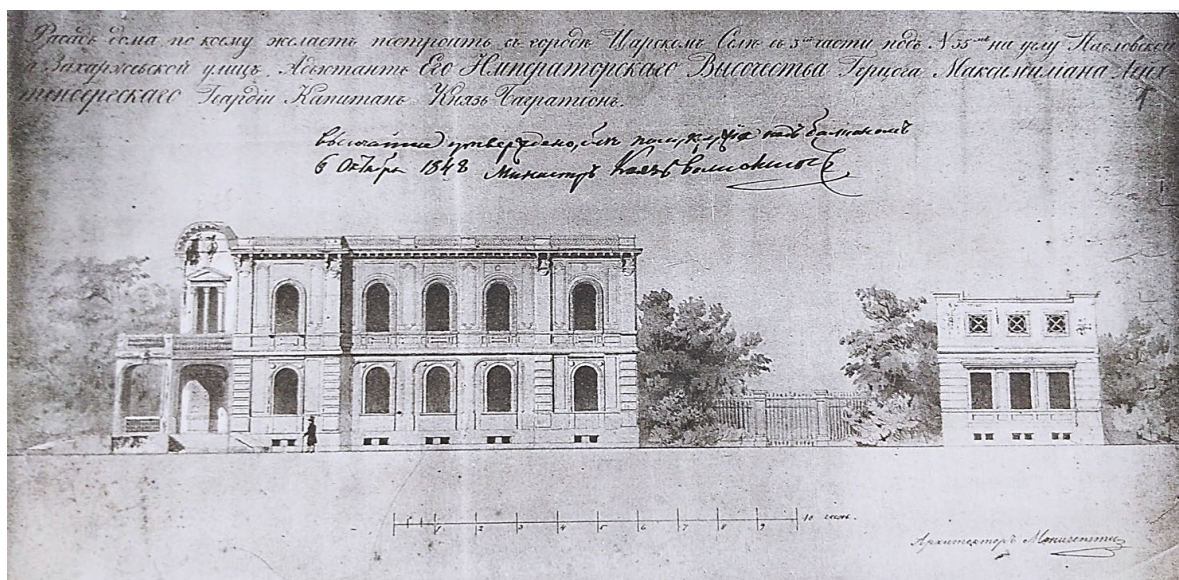 Фасадъ дома по коему желаетъ построить въ городѣ Царскомъ Селѣ въ 3ей части подъ N 35мъ на углу Павловской
и Захаржевской улицъ, Адъютантъ Его Императорскаго Высочества Герцога Максимилiана Лейх
тенбергскаго Гвардiи Капитанъ Князь Багратiонъ.
Высочайше утверждено, безъ полукруга надъ балкономъ
6 Октября 1848 Министръ Князь Волконскiй
1 2 3 4 5 6 7 8 9 10 саж.
Архитекторъ Монигетти